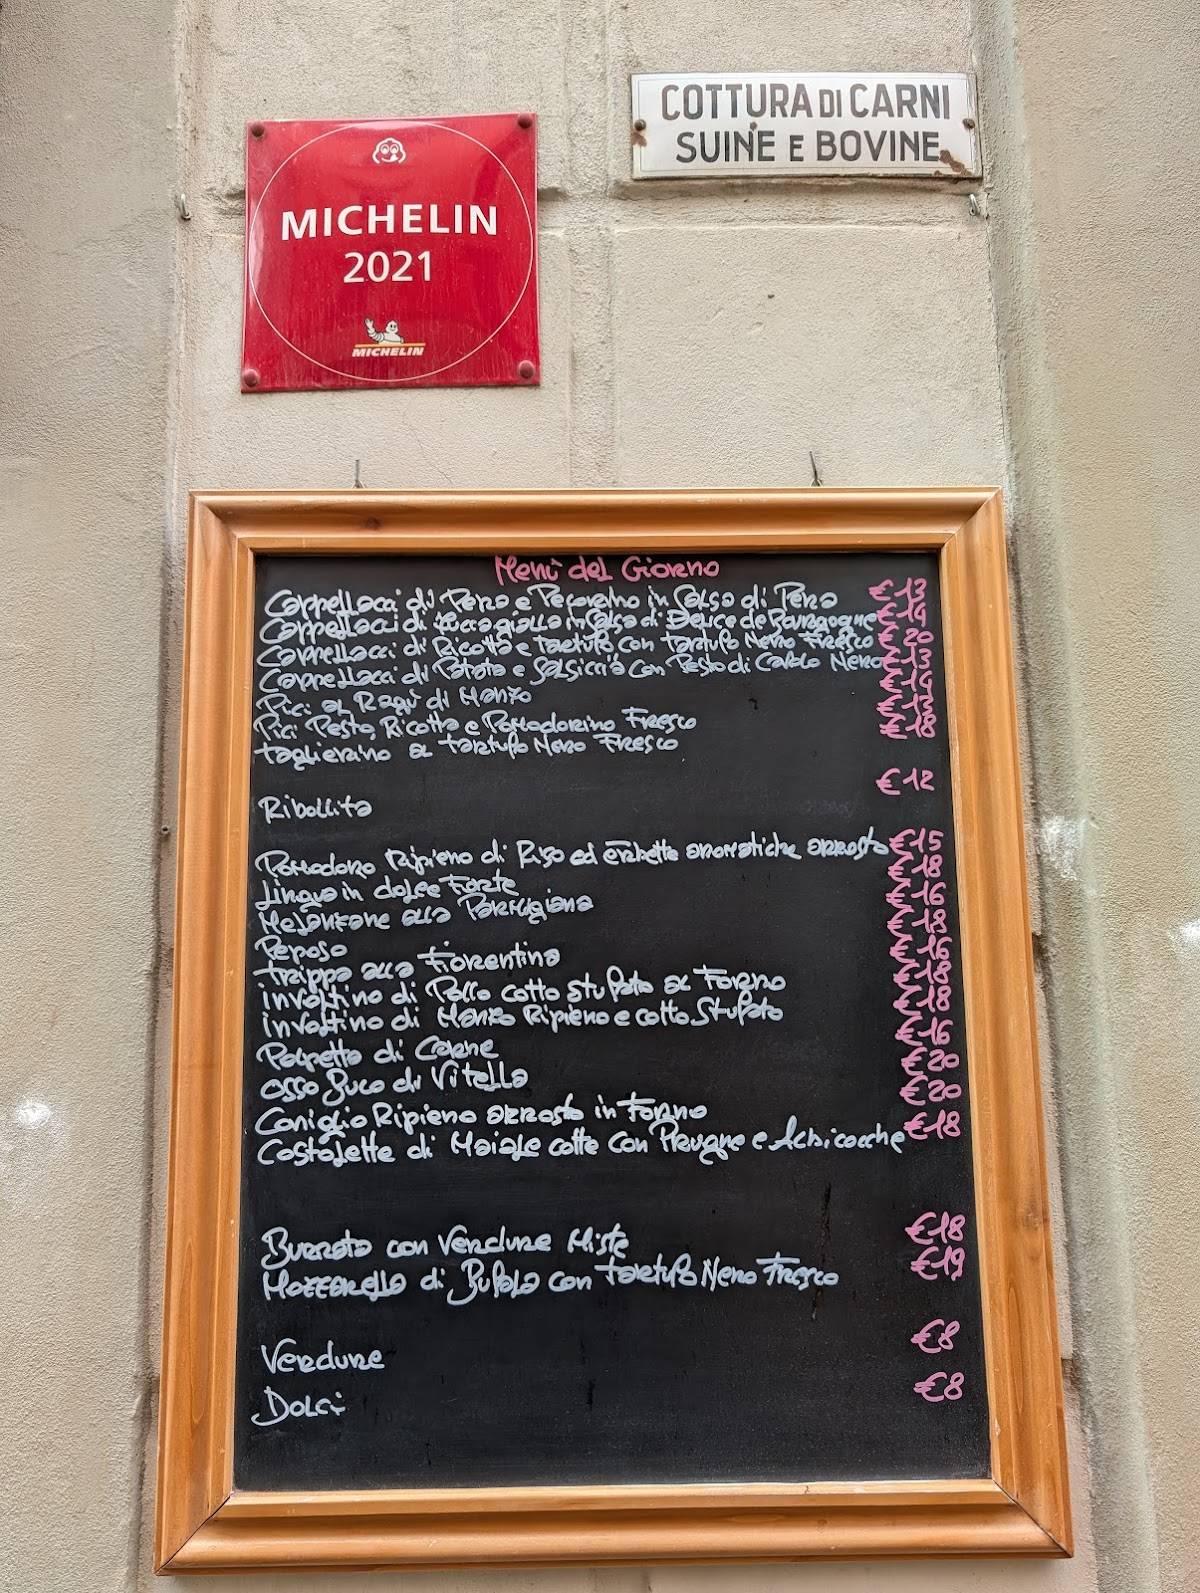 MICHELIN
2021
MICHELIN
COTTURA DI CARNI
SUINE E BOVINE
Menù del Giorno
Cappellacci di Pera e Pecorino in Salsa di Pera
Cappellacci di Zucca gialla in Salsa di de Bourgogne
Cappellacci di Ricotta e Tartufo con Tartufo Nero Fresco €20
Cappellacci di Patata e Salsiccia con Pesto di Cavolo Nero
Pici al Ragù di Manzo
Pici Pesto, Ricotta e Pomodorino Fresco
Taglierino al Tartufo Nero Fresco
Ribollita €12
Pomodoro Ripieno di Riso ed erbette aromatiche arrosto €15
Lingua in dolce Forte €18
Melanzane alla Parmigiana €16
Peposo €18
Trippa alla Fiorentina
involtino di Pollo cotto stufato al Forno
involtino di Manzo Ripieno e cotto Stufato
Polpetta di Carne €16
Osso Buco di Vitella €20
Coniglio Ripieno arrosto in Forno €20
Costolette di Maiale cotte con Prugne e Albicocche €18
Burrata con Verdure Miste €18
Mozzarella di Bufala con Tartufo Nero Fresco €19
Verdure €8
Dolci €8